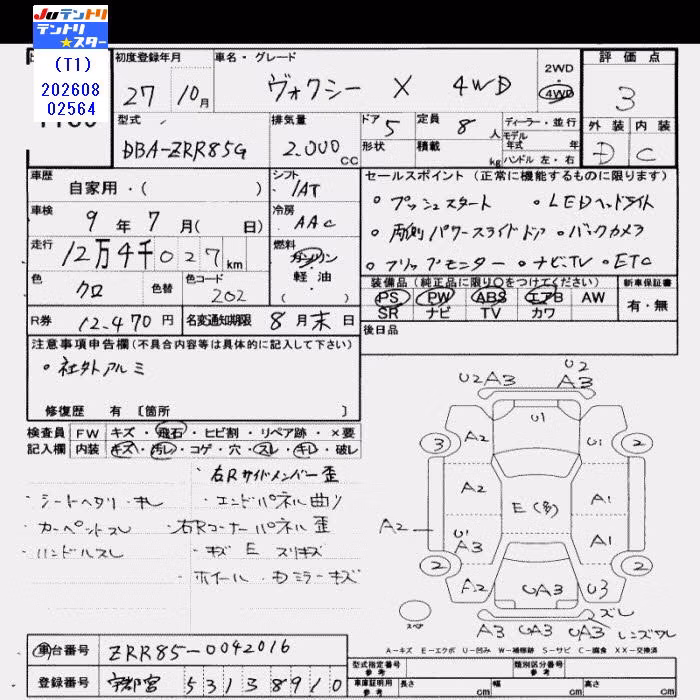 Juテントリ
テントリ
★スター
(T1)
202608
02564
初度登録年月
27年10月
車名・グレード
ヴォクシー X 4WD
2WD
4WD
評価点
3
外装 内装
D C
型式
DBA-ZRR85G
排気量
2.000cc
ドア
5
形状
定員
8人
積載
kg
ディーラー・並行
モデル
年式 年
ハンドル 左・右
車歴
自家用・( )
シフト
IAT
セールスポイント(正常に機能するものに限ります)
・プッシュスタート ・LEDヘッドライト
・両側パワースライドドア ・バックカメラ
・フリップモニター ・ナビ、TV ・ETC
車検
9年7月( 日)
冷房
AAC
走行
12万4千027km
燃料
ガソリン
軽油
( )
色
クロ
色替
色コード
202
装備品(純正品に限り○をつけてください)
PS PW ABS エアB AW
SR ナビ TV カワ
新車保証書
有・無
R券 12.470円
名変通知期限 8月末日
後日品
注意事項申告欄(不具合内容等は具体的に記入して下さい)
・社外アルミ
修復歴 有 [箇所 ]
検査員 FW キズ・飛石・ヒビ割・リペア跡・×要
記入欄 内装 キズ・汚レ・コゲ・穴・スレ・キレ・破レ
・右Rサイドメンバー歪
・シートヘタリ・キレ ・エンドパネル曲り
・カーペットスレ ・右Rコーナーパネル歪
・ハンドルスレ ・キズ E スリキズ
・ホイール・ミラーキズ
U2A3 U2
A3
U1
3 A2 U1 2
A2 E(多) A1
A2 U1
A3 A1
2 2
A2 UA3 U3
スレ
A3 UA3 UA3
スペア
A-キズ E-エクボ U-凹み W-補修跡 S-サビ C-腐食 XX-交換済
車台番号 ZRR85-0042016
登録番号 宇都宮 531 38910
型式指定番号
参考
類別区分番号
参考
車庫証明用
参考
長さ cm 幅 cm 高さ cm